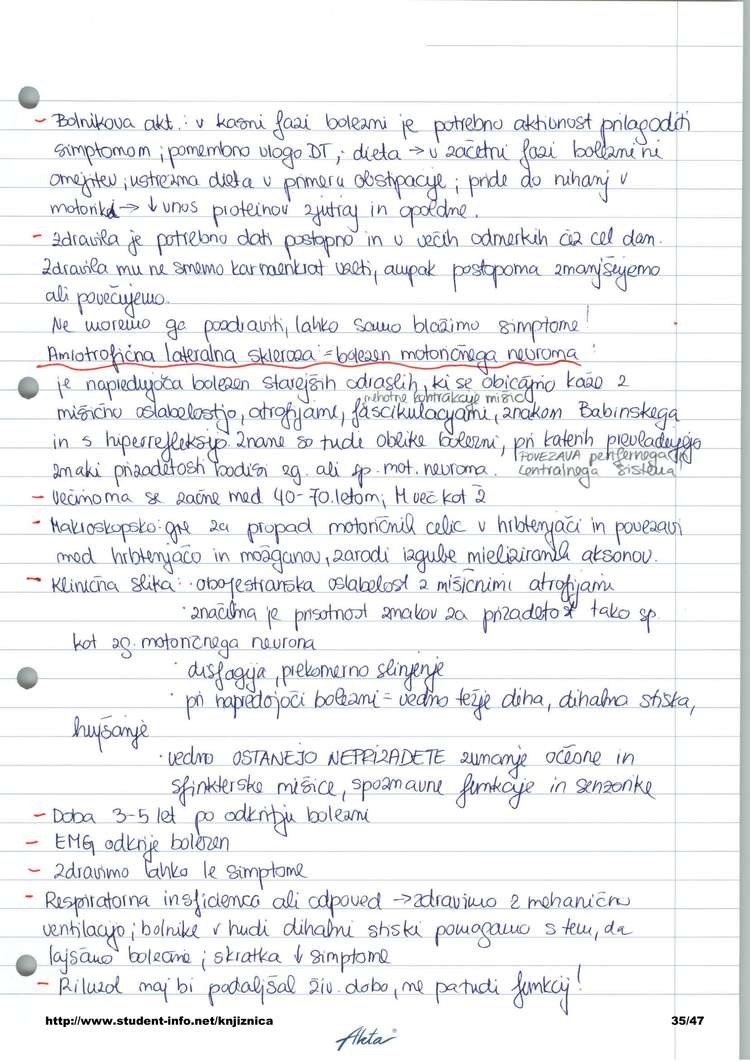 - Bolnikova akt.: v kasni fazi bolezni je potrebno aktivnost prilagoditi
simptomom; pomembno vlogo DT; dieta → v začetni fazi bolezni ni
omejitev; ustrezna dieta v primeru obstipacije; pride do nihanj v
motoriki → ↓ vnos proteinov zjutraj in opoldne.
- Zdravila je potrebno dati postopno in v večih odmerkih čez cel dan.
Zdravila mu ne smemo kar naenkrat vzeti, ampak postopoma zmanjšujemo
ali povečujemo.
Ne moremo ga pozdraviti, lahko samo blažimo simptome!
Amiotrofična lateralna skleroza = bolezen motoričnega nevrona:
je napredujoča bolezen starejših odraslih, ki se običajno kaže z
nehotne kontrakcije mišic
mišično oslabelostjo, atrofijami, fascikulacijami, znakom Babinskega
in s hiperrefleksijo. Znane so tudi oblike bolezni, pri katerih prevladujejo
POVEZAVA perifernega in
znaki prizadetosti bodisi zg. ali sp. mot. nevrona. centralnega sistema
- večinoma se začne med 40-70. letom; M več kot Ž
- Makroskopsko: gre za propad motoričnih celic v hrbtenjači in povezavi
med hrbtenjačo in možganov, zaradi izgube mieliziranih aksonov.
- Klinična slika: · obojestranska oslabelost z mišičnimi atrofijami
· značilna je prisotnost znakov za prizadetost tako sp.
kot zg. motoričnega nevrona
· disfagija, prekomerno slinjenje
· pri napredojoči bolezni = vedno težje diha, dihalna stiska,
hujšanje
· vedno OSTANEJO NEPRIZADETE zunanje očesne in
sfinkterske mišice, spoznavne funkcije in senzorike
- Doba 3-5 let po odkritju bolezni
- EMG odkrije bolezen
- Zdravimo lahko le simptome
- Respiratorna insficienca ali odpoved → zdravimo z mehanično
ventilacijo; bolnike v hudi dihalni stiski pomagamo s tem, da
lajšamo bolečine; skratka ↓ simptome
- Riluzol naj bi podaljšal živ. dobo, ne pa tudi funkcij!
http://www.student-info.net/knjiznica 35/47
Akta®